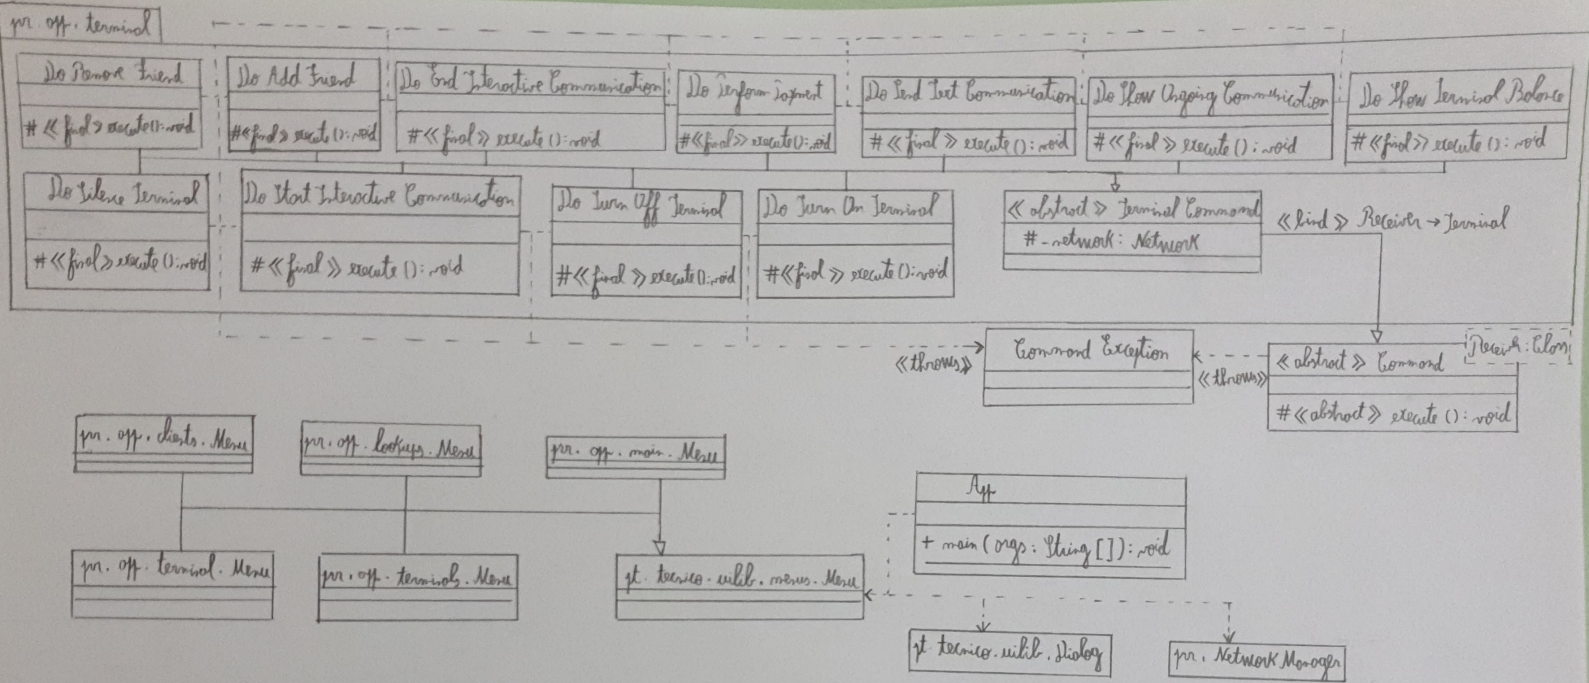 pr.app.terminal
Do Remove Friend
#≪final≫execute():void
Do Add Friend
#≪final≫execute():void
Do End Interactive Communication
#≪final≫execute():void
Do Perform Payment
#≪final≫execute():void
Do Send Text Communication
#≪final≫execute():void
Do Show Ongoing Communication
#≪final≫execute():void
Do Show Terminal Balance
#≪final≫execute():void
Do Silence Terminal
#≪final≫execute():void
Do Start Interactive Communication
#≪final≫execute():void
Do Turn Off Terminal
#≪final≫execute():void
Do Turn On Terminal
#≪final≫execute():void
≪abstract≫ Terminal Command
#_network: Network
≪bind≫ Receiver→Terminal
Command Exception
≪throws≫
≪throws≫
≪abstract≫ Command
Receiver:Class
#≪abstract≫ execute():void
pr.app.clients.Menu
pr.app.lookups.Menu
pr.app.main.Menu
App
+ main(args: String[]):void
pr.app.terminal.Menu
pr.app.terminals.Menu
pt.tecnico.uilib.menus.Menu
pt.tecnico.uilib.Dialog
pr.NetworkManager